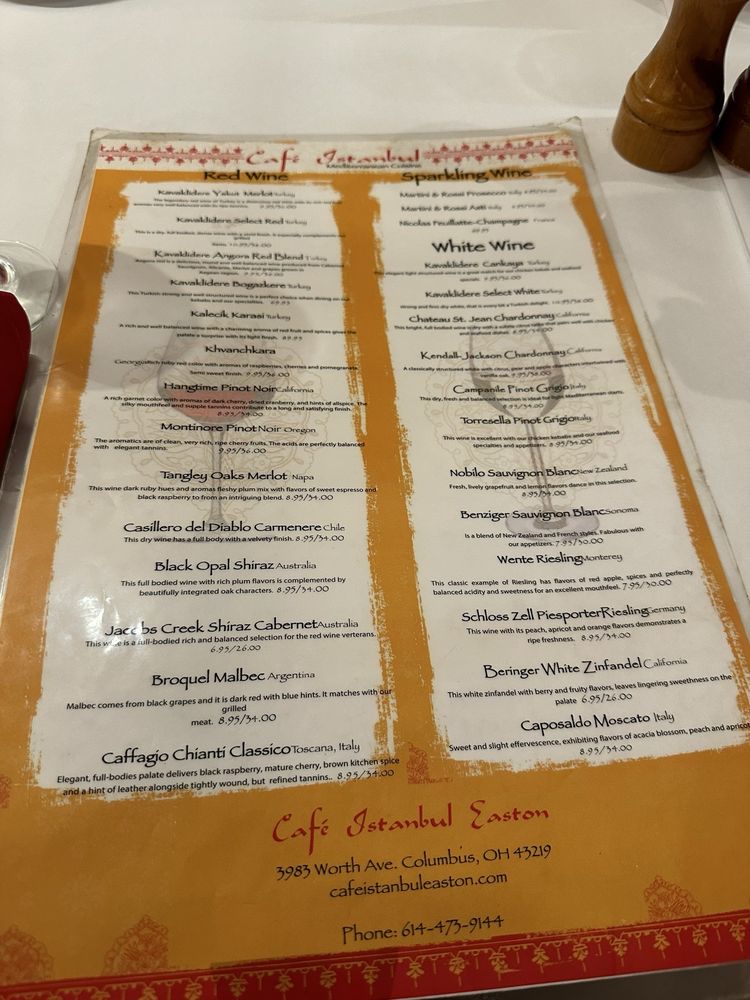 Café Istanbul
Mediterranean Cuisine
Red Wine
Kavaklidere Yakut Merlot Turkey
The legendary red wine of Turkey is a
9.95/36.00
Kavaklidere Select Red Turkey
This is a dry, full bodied, dense wine with a vivid finish. It especially complements our
grilled
items. 10.95/36.00
Kavaklidere Angora Red Blend Turkey
Angora red is a delicious, round and well balanced wine produced from Cabernet
Sauvignon, Alicante, Merlot and grapes grown in
Aegean region. 9.95/36.00
Kavaklidere Bogazkere Turkey
This Turkish strong and well structured wine is a perfect choice when dining on our
kebabs and our specialties.
Kalecik Karasi Turkey
A rich and well balanced wine with a charming aroma of red fruit and spices gives the
palate a surprise with its light finish.
Khvanchkara
Georgia Rich ruby red color with aromas of raspberries, cherries and pomegranate.
Semi sweet finish. 9.95/36.00
Hangtime Pinot Noir California
A rich garnet color with aromas of dark cherry, dried cranberry, and hints of allspice. The
silky mouthfeel and supple tannins contribute to a long and satisfying finish.
8.95/34.00
Montinore Pinot Noir Oregon
The aromatics are of clean, very rich, ripe cherry fruits. The acids are perfectly balanced
with elegant tannins. 9.95/36.00
Tangley Oaks Merlot Napa
This wine dark ruby hues and aromas fleshy plum mix with flavors of sweet espresso and
black raspberry to from an intriguing blend. 8.95/34.00
Casillero del Diablo Carmenere Chile
This dry wine has a full body with a velvety finish. 8.95/34.00
Black Opal Shiraz Australia
This full bodied wine with rich plum flavors is complemented by
beautifully integrated oak characters. 8.95/34.00
Jacobs Creek Shiraz Cabernet Australia
This wine is a full-bodied rich and balanced selection for the red wine verterans.
6.95/26.00
Broquel Malbec Argentina
Malbec comes from black grapes and it is dark red with blue hints. It matches with our
grilled
meat. 8.95/34.00
Caffagio Chianti Classico Toscana, Italy
Elegant, full-bodies palate delivers black raspberry, mature cherry, brown kitchen spice
and a hint of leather alongside tightly wound, but refined tannins.. 8.95/34.00
Sparkling Wine
Martini & Rossi Prosecco Italy
Martini & Rossi Asti Italy
Nicolas Feuillatte-Champagne France
White Wine
Kavaklidere Cankaya Turkey
This elegant light structured wine is a great match for our chicken kebab and seafood
specials. 9.95/36.00
Kavaklidere Select White Turkey
strong and firm dry white, that is every bit a Turkish delight. 10.95/36.00
Chateau St. Jean Chardonnay California
This bright, full bodied wine is dry with a subtle citrus taste that pairs well with chicken
and seafood dishes. 8.95/34.00
Kendall-Jackson Chardonnay California
A classically structured white with citrus, pear and apple characters intertwined with
vanilla oak. 9.95/38.00
Campanile Pinot Grigio Italy
This dry, fresh and balanced selection is ideal for light Mediterranean starts.
8.95/34.00
Torresella Pinot Grigio Italy
This wine is excellent with our chicken kebabs and our seafood
specialties and appetizers. 8.95/34.00
Nobilo Sauvignon Blanc New Zealand
Fresh, lively grapefruit and lemon flavors dance in this selection.
8.95/34.00
Benziger Sauvignon Blanc Sonoma
Is a blend of New Zealand and French styles. Fabulous with
our appetizers. 7.95/30.00
Wente Riesling Monterey
This classic example of Riesling has flavors of red apple, spices and perfectly
balanced acidity and sweetness for an excellent mouthfeel. 7.95/30.00
Schloss Zell Piesporter Riesling Germany
This wine with its peach, apricot and orange flavors demonstrates a
ripe freshness. 8.95/34.00
Beringer White Zinfandel California
This white zinfandel with berry and fruity flavors, leaves lingering sweetness on the
palate 6.95/26.00
Caposaldo Moscato Italy
Sweet and slight effervescence, exhibiting flavors of acacia blossom, peach and apricot
8.95/34.00
Café Istanbul Easton
3983 Worth Ave. Columbus, OH 43219
cafeistanbuleaston.com
Phone: 614-473-9144